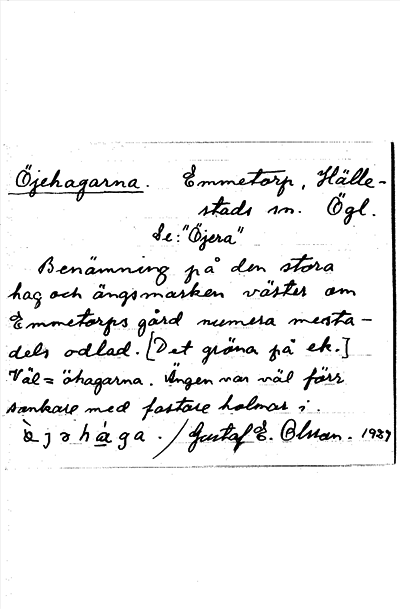 Öjehagarna. Emmetorp, Hälle-
stads sn. Ögl.
Se: "Öjera"
Benämning på den stora
hag och ängsmarken väster om
Emmetorps gård numera mesta-
dels odlad. [Det gröna på ek.]
Väl = öhagarna. Ängen var väl förr
sankare med fastare holmar i.
öjəhàga. / Gustaf E. Olsson. 1937